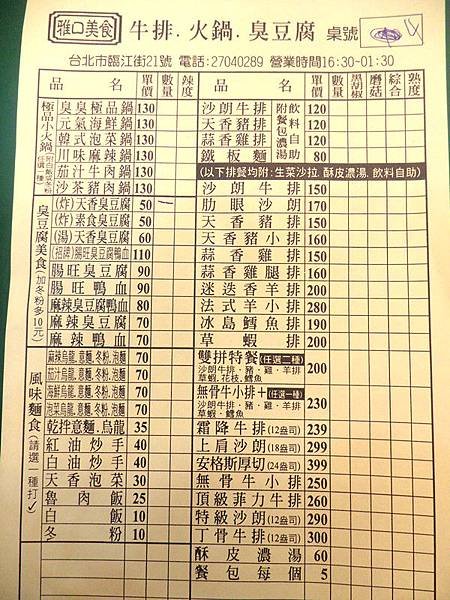 雅口美食 牛排.火鍋.臭豆腐 桌號
台北市臨江街21號 電話:27040289 營業時間16:30~01:30
品名 單價 數量 辣度
極品小火鍋(附白飯或冬粉任選一種)
臭臭極品鍋 130
元氣海鮮鍋 130
韓式泡菜鍋 130
川味麻辣鍋 130
茄汁牛肉鍋 130
沙茶豬肉鍋 130
臭豆腐美食(加冬粉多10元)
(炸)天香臭豆腐 50
(炸)素食臭豆腐 50
(湯)天香臭豆腐 60
(招牌)腸旺臭豆腐鴨血 110
腸旺臭豆腐 90
腸旺鴨血 90
麻辣臭豆腐鴨血 80
麻辣臭豆腐 70
麻辣鴨血 70
風味麵食(請選一種打✓)
麻辣烏龍.意麵.冬粉.泡麵 70
茄汁烏龍.意麵.冬粉.泡麵 70
海鮮烏龍.意麵.冬粉.泡麵 70
泡菜烏龍.意麵.冬粉.泡麵 70
乾拌意麵.烏龍 35
紅油炒手 40
白油炒手 40
天香泡菜 30
魯肉飯 25
白飯 10
冬粉 10
品名 單價 數量 黑胡椒 蘑菇 綜合 熟度
沙朗牛排 120
天香豬排 120
蒜香雞排 120
鐵板麵 80
附餐包濃湯 飲料自助
(以下排餐均附:生菜沙拉.酥皮濃湯.飲料自助)
沙朗牛排 150
肋眼沙朗 170
天香豬排 150
天香豬小排 160
蒜香雞排 150
蒜香雞腿排 160
迷迭香羊排 200
法式羊小排 280
冰島鱈魚排 190
草蝦排 200
雙拼特餐(任選二種) 200
沙朗牛排.豬.雞.羊排
草蝦.花枝.鱈魚
無骨牛小排+(任選一種) 230
沙朗牛排.豬.雞.羊排
草蝦.鱈魚
霜降牛排(12盎司) 239
上肩沙朗(18盎司) 299
安格斯厚切(24盎司) 399
無骨牛小排 250
頂級菲力牛排 260
特級沙朗(12盎司) 290
丁骨牛排(12盎司) 300
酥皮濃湯 60
餐包每個 5